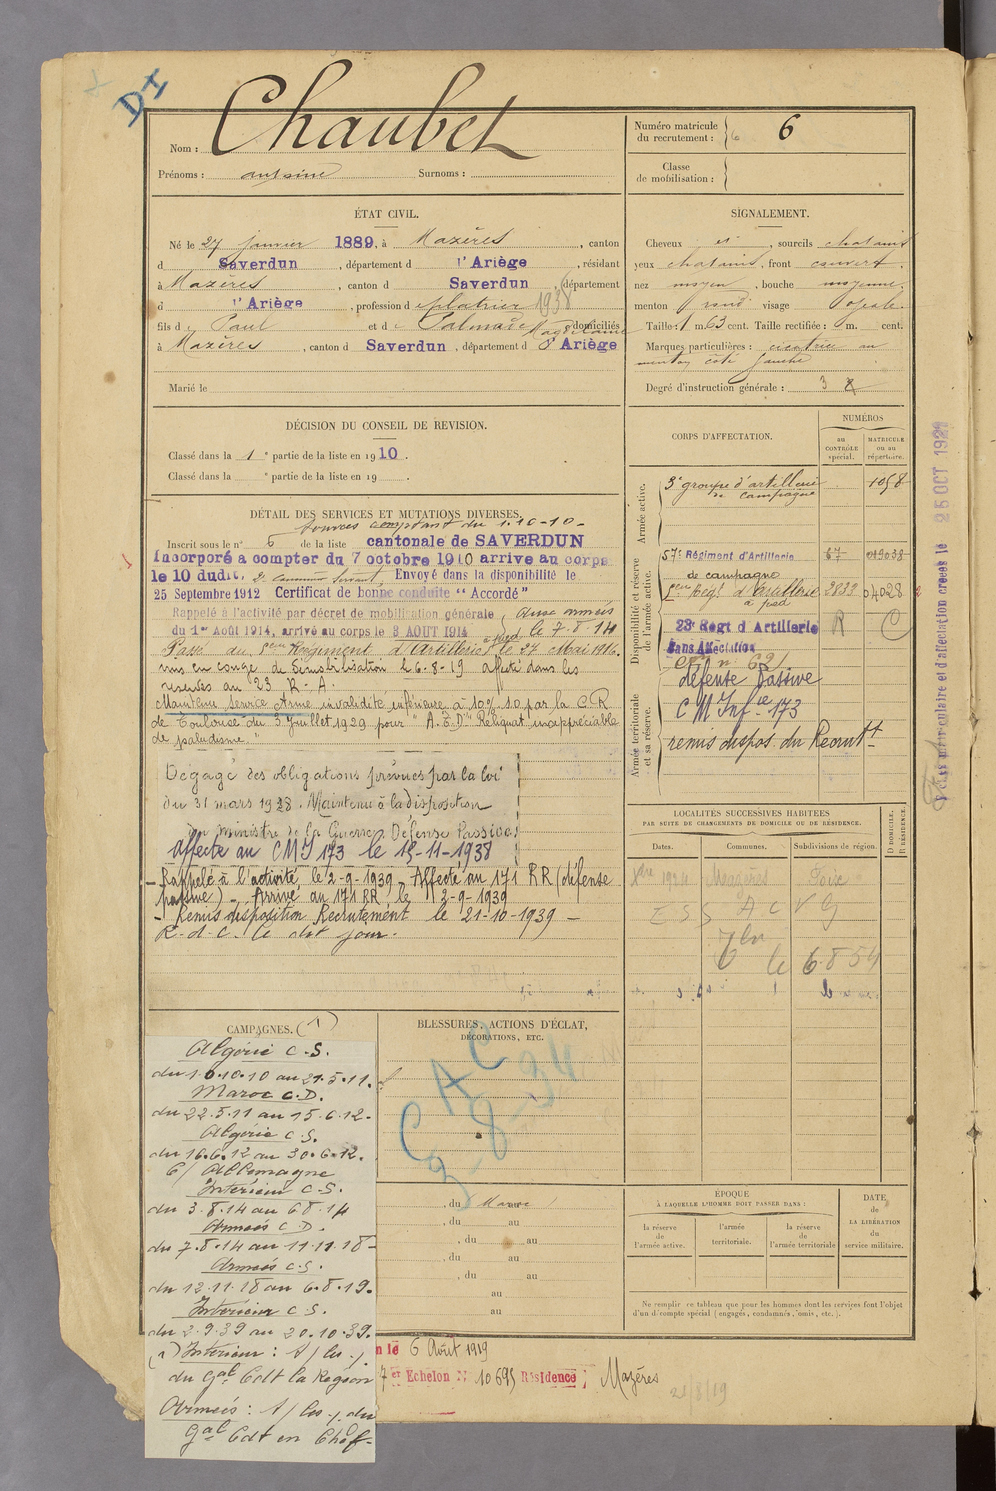 DI
Nom : Chaubet
Prénoms : antoine Surnoms :
Numéro matricule du recrutement : 6
Classe de mobilisation :
ÉTAT CIVIL.
Né le 27 janvier 1889, à Mazères, canton
d Saverdun, département d l'Ariège, résidant
à Mazères, canton d Saverdun, département
d l'Ariège, profession d plâtrier 1938
fils d Paul et d Palmade Magdelaine domiciliés
à Mazères, canton d Saverdun, département d l'Ariège
Marié le
SIGNALEMENT.
Cheveux et, sourcils chatains
yeux chatains, front couvert,
nez moyen, bouche moyenne,
menton rond visage ovale.
Taille : 1 m. 63 cent. Taille rectifiée : m. cent.
Marques particulières : cicatrice au
menton côté gauche
Degré d'instruction générale : 3
DÉCISION DU CONSEIL DE REVISION.
Classé dans la 1e partie de la liste en 1910.
Classé dans la e partie de la liste en 19 .
DÉTAIL DES SERVICES ET MUTATIONS DIVERSES.
Services comptant du 1.10-10-
Inscrit sous le n° 6 de la liste cantonale de SAVERDUN
Incorporé a compter du 7 octobre 1910 arrive au corps
le 10 dudit, 2e canonnier servant, Envoyé dans la disponibilité le
25 Septembre 1912 Certificat de bonne conduite "Accordé"
Rappelé à l'activité par décret de mobilisation générale, Aux armées
du 1er Août 1914, arrivé au corps le 3 AOUT 1914 le 7.8.14
Passé au Régiment d'Artillerie à pied le 27 Mai 1916.
mis en congé de démobilisation le 6-8-19 affecté dans les
réserves au 23 R.A.
Maintenu Service Armé invalidité inférieure à 10% .10 par la C.R
de Toulouse du 3 Juillet 1929 pour "A.E.D. Reliquat inappréciable
de paludisme."
Dégagé des obligations prévues par la loi
du 31 mars 1928. Maintenu à la disposition
du ministre de la Guerre Défense Passive.
Affecté au CMI 173 le 15-11-1938
- Rappelé à l'activité, le 2-9-1939 - Affecté au 171 RR (défense
passive) - Arrivé au 171 RR le 2-9-1939
- Remis disposition Recrutement le 21-10-1939 -
R-d-C. le dit jour.
CORPS D'AFFECTATION.
NUMÉROS
au CONTRÔLE spécial.
MATRICULE ou au répertoire.
Armée active.
3e groupe d'artillerie de campagne 1058
Disponibilité et réserve de l'armée active.
57e Régiment d'Artillerie de campagne 67 019038
Régt d'Artillerie à pied 3833 04028
23e Régt d'Artillerie R C
Sans Affectation
Armée territoriale et sa réserve.
défense Passive
C M Inf ie 173
remis dispos. du Recrutt
Pièce matriculaire et d'affectation créées le 25 OCT 1921
LOCALITÉS SUCCESSIVES HABITÉES
PAR SUITE DE CHANGEMENTS DE DOMICILE OU DE RÉSIDENCE.
Dates. Communes. Subdivisions de région. D DOMICILE. R RÉSIDENCE.
Xbre 1924 Mazères Foix
le 6.8 54
CAMPAGNES. (1)
Algérie C.S.
du 10.10.10 au 21.5.11.
Maroc C.D.
du 22.5.11 au 15.6.12.
Algérie C.S.
du 16.6.12 au 30.6.12.
C/ Allemagne
Intérieur C.S.
du 3.8.14 au 6 8.14
Armées C.D.
du 7.8.14 au 11.11.18-
Armées C.S.
du 12.11.18 au 6.8.19.
Intérieur C.S.
du 2.9.39 au 20.10.39.
(1) Intérieur :
du Gal Cdt la Région
Armées :
Gal Cdt en Chef-
BLESSURES, ACTIONS D'ÉCLAT,
DÉCORATIONS, ETC.
C A C
9-8-34
, du Maroc au
, du au
, du au
, du au
, du au
au
au
ÉPOQUE
À LAQUELLE L'HOMME DOIT PASSER DANS :
la réserve de l'armée active.
l'armée territoriale.
la réserve de l'armée territoriale
DATE de LA LIBÉRATION du service militaire.
Ne remplir ce tableau que pour les hommes dont les services font l'objet
d'un décompte spécial (engagés, condamnés, omis, etc.).
n le 6 Août 1919
7 er Echelon N° 10695 Résidence ; Mazères
21/8/19